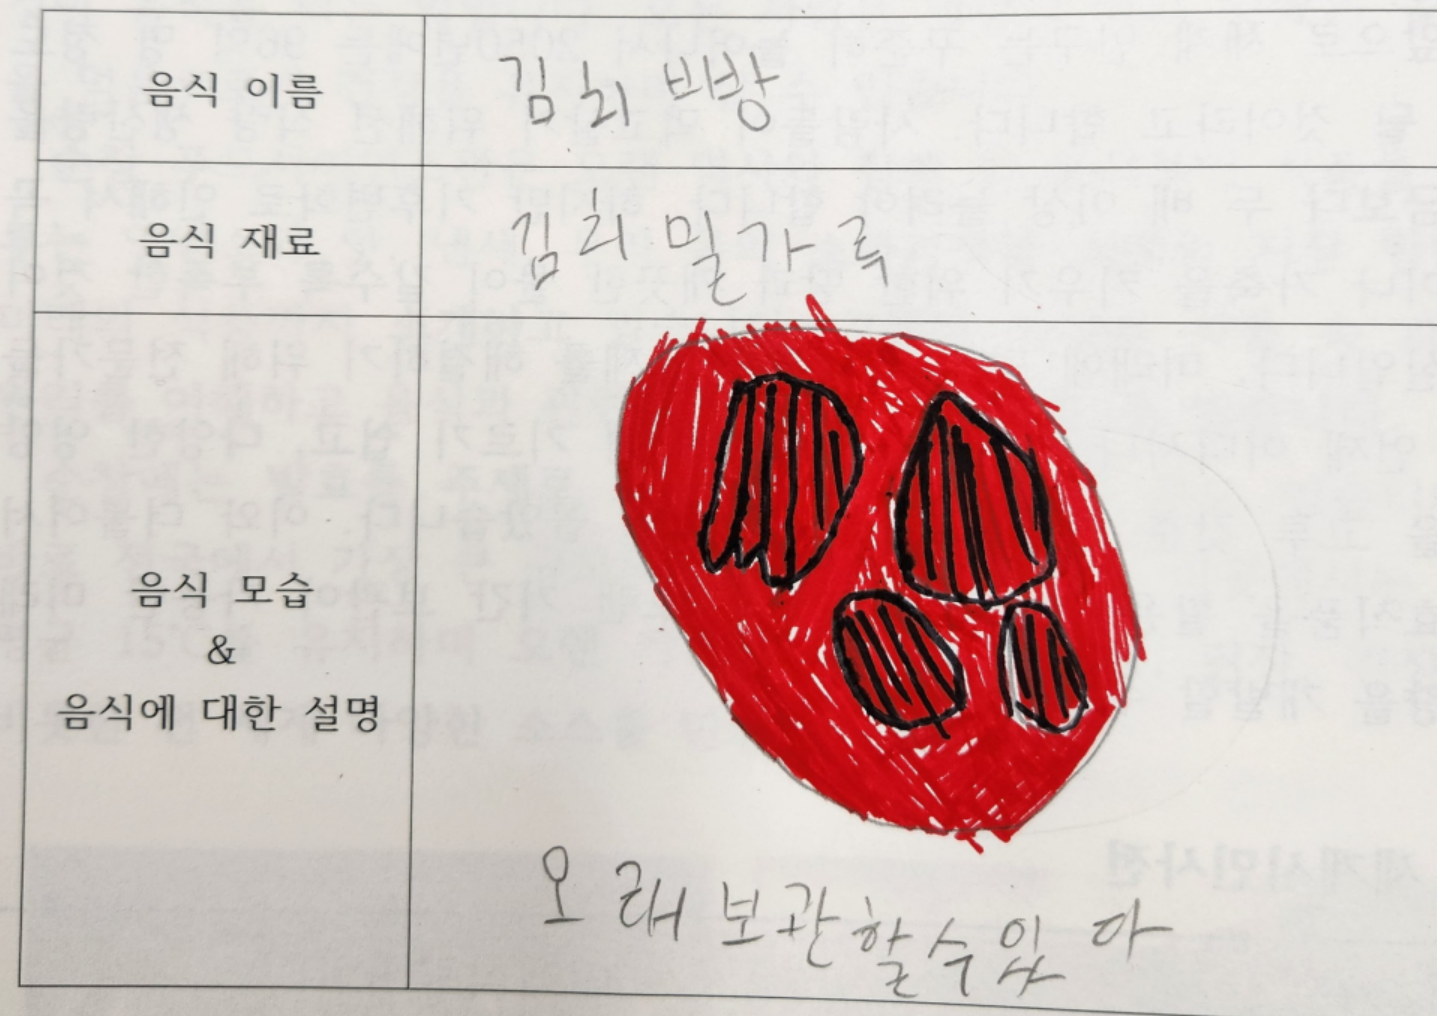 음식 이름
김치
음식 재료
김치 밀가루
음식 모습
&
음식에 대한 설명
오래 보관할수있다